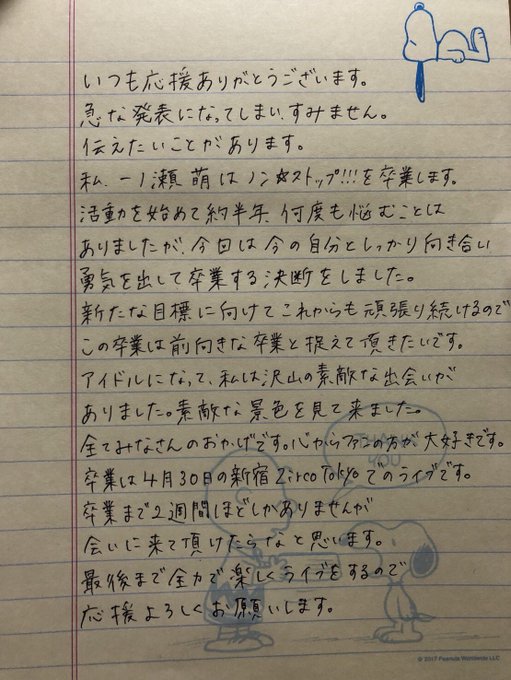 いつも応援ありがとうございます。
急な発表になってしまい、すみません。
伝えたいことがあります。
私、一ノ瀬萌はノン☆ストップ!!!を卒業します。
活動を始めて約半年、何度も悩むことは
ありましたが、今回は今の自分としっかり向き合い
勇気を出して卒業する決断をしました。
新たな目標に向けてこれからも頑張り続けるので
この卒業は前向きな卒業と捉えて頂きたいです。
アイドルになって、私は沢山の素敵な出会いが
ありました。素敵な景色を見て来ました。
全てみなさんのおかげです。心からファンの方が大好きです。
卒業は4月30日の新宿ZircoTokyoでのライブです。
卒業まで2週間ほどしかありませんが
会いに来て頂けたらなと思います。
最後まで全力で楽しくライブをするので
応援よろしくお願いします。
© 2017 Peanuts Worldwide LLC